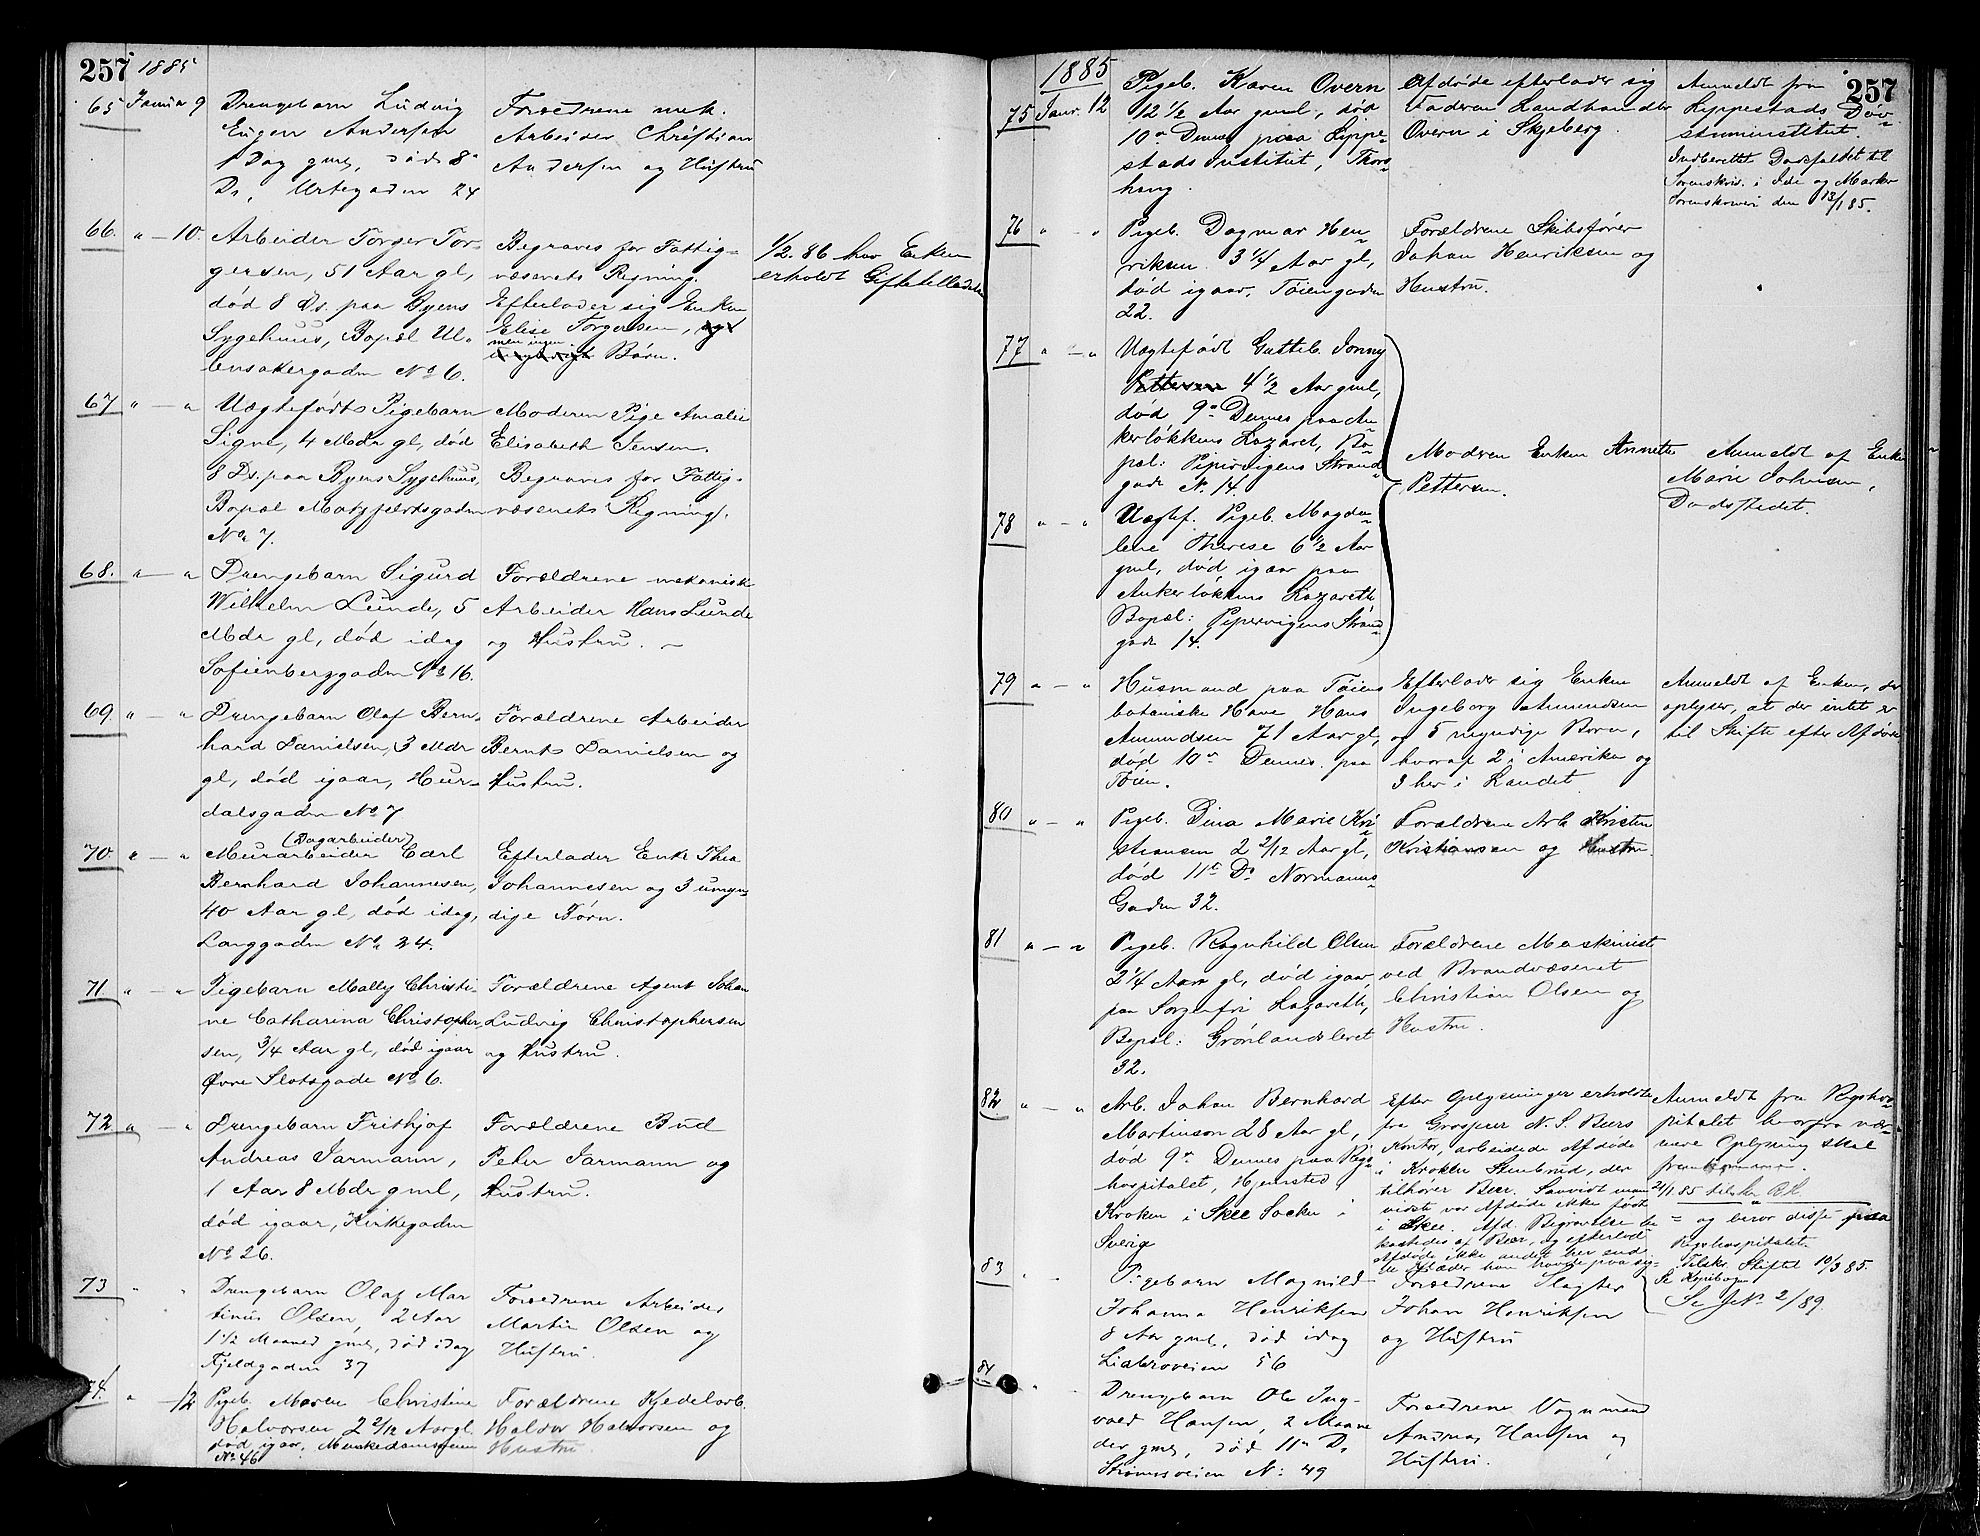 257
1885
65 Januar 9
Drengebarn Ludvig
Eugen Andersen
1 Dag gml, død 8de
Ds, Urtegaden 24
Forældrene mek.
Arbeider Christian
Andersen og Hustru
66. " — 10.
Arbeider Torger Tor-
gersen, 51 Aar gl,
død 8 Ds. paa Byens
Sygehuus, Bopæl Ul-
lensakergaden No 6.
Begraves for Fattig-
væsenets Regning.
Efterlader sig Enken
Elise Torgersen, og
men ingen
Børn.
1/2.86 har Enken
erholdt Giftetilladelse
67 " — "
Uægtefødte Pigebarn
Signe, 4 Mdr gl, død
8 Ds. paa Byens Sygehuus,
Bopæl
No 7.
Moderen Pige Amalie
Elisabeth Jensen.
Begraves for Fattig-
væsenets Regning.
68. " — "
Drengebarn Sigurd
Wilhelm Lunde, 5
Mdr gl, død idag
Sofienberggaden No 16.
Forældrene mekanisk
Arbeider Hans Lunde
og Hustru.
69. " — "
Drengebarn Olaf Bern-
hard Danielsen, 3 Mdr
gl, død igaar, Hur-
dalsgaden No 7
Forældrene Arbeider
Bernt Danielsen og
Hustru.
70. " — "
(Dagarbeider)
Murarbeider Carl
Bernhard Johannesen,
40 Aar gl, død idag,
Langgaden No 24.
Efterlader Enke Thea
Johannesen og 3 umyn-
dige Børn.
71. " — "
Pigebarn Mally Christi-
ne Catharina Christopher
sen, 3/4 Aar gl, død igaar
Øvre Slotsgade No 6.
Forældrene Agent Johan
Ludvig Christophersen
og Hustru.
72. " — "
Drengebarn Frithjof
Andreas Jarmann,
1 Aar 8 Mdr gml,
død igaar, Kirkegaden
No 26.
Forældrene Bud
Peter Jarmann og
Hustru.
73 " "
Drengebarn Olaf Mar
tinus Olsen, 2 Aar
1 1/2 Maaned gml, død idag
Fjeldgaden 37
Forældrene Arbeider
Martin Olsen og
Hustru.
74. " — 12
Pigeb. Maren Christine
Halvorsen 2 2/12 Aar gl.
død igaar. Munkedamsveien
No 46
Forældrene Kjedelarb.
Halvor Halvorsen og
Hustru.
257
1885
75 Janr. 12
Pigeb. Karen Overn
12 1/2 Aar gml, død
10de Dennes paa Lippe-
stads Institut, Thors
haug.
Afdøde efterlader sig
Faderen Landhandler
Overn i Skjeberg.
Anmeldt fra
Lippestads Døv-
stumminstitut.
Indberettet Dødsfaldet til
Sorenskriv. i Ide og Marker
Sorenskriveri den 13/1 85.
76 " — "
Pigeb. Dagmar Hen-
riksen 3 1/4 Aar gl,
død igaar, Tøiengaden
22.
Forældrene Skibsfører
Johan Henriksen og
Hustru.
77 " — "
Uægtefødt Gutteb. Jonny
Pettersen 4 1/2 Aar gml,
død 9de Dennes paa An-
kerløkkens Lazaret, Bo-
pæl: Pipervigens Strand-
gade N. 14.
78 " — "
Uægtef. Pigeb. Magda-
lene Therese 6 1/2 Aar
gml, død igaar paa
Ankerløkkens Lazareth
Bopæl: Pipervigens Strand-
gade 14.
Modren Enken Annette
Pettersen.
Anmeldt af Enke
Marie Johnsen,
Dødsstedet.
79 " — "
Husmand paa Tøiens
botaniske Have Hans
Amundsen 71 Aar gl,
død 10de Dennes paa
Tøien.
Efterlader sig Enken
Ingeborg Amundsen
og 5 myndige Børn,
hvoraf 2 i Amerika og
3 her i Landet
Anmeldt af Enken, der
oplyser, at der intet er
til Skifte efter Afdøde
80 " — "
Pigeb. Dina Marie Kri
stiansen 2 2/12 Aar gl,
død 11te Ds Normanns-
Gaden 32.
Forældrene Arb. Kristen
Kristiansen og Hustru.
81 " — "
Pigeb. Ragnhild Olsen
2 1/4 Aar gl, død igaar
paa Sorgenfri Lazareth,
Bopæl: Grønlandsleret
32.
Forældrene Maskinist
ved Brandvæsenet
Christian Olsen og
Hustru.
82 " — "
Arb. Johan Bernhard
Martinson 28 Aar gl,
død 9de Dennes paa Rigs-
hospitalet, Hjemsted
Kroken i Skee Socken i
Sverig
Efter Oplysninger erholdte
fra Grosserer N. S. Beers
Kontor, arbeidede Afdøde
i Kroken Stenbrud, der
tilhører Beer. Saavidt man
vidste var Afdøde ikke født
i Skee. Afd. Begravelse be
kostedes af Beer, og efterlod
Afdøde ikke andet her end
de Klæder han havde paa sig.
Anmeldt fra Rigshos-
pitalet hvorfra nær-
mere Oplysning skal
fremkomme.
21/1 85 tilskr. R.H.
= og beror disse paa
Rigshospitalet.
Tilskr. Skiftet 10/3 85.
Se Kopibog
Se J.No 2/89.
83 " "
Pigebarn Magnild
Johanna Henriksen
8 Aar gml, død idag
Liabroveien 56
Forældrene Slagter
Johan Henriksen
og Hustru
84 " "
Drengebarn Ole Ing-
vald Hansen, 2 Maane
der gml, død 11te Ds
Strømsveien N: 49
Forældrene Vognmand
Andreas Hansen og
Hustru.